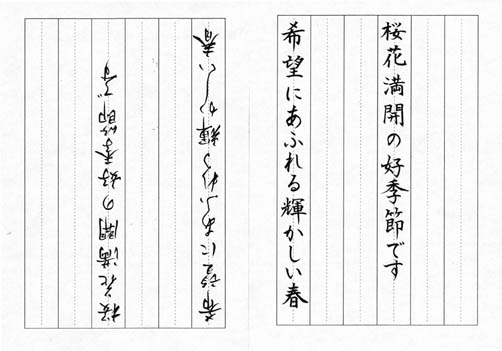 桜花満開の好季節です
希望にあふれる輝かしい春
桜花満開の好季節です
希望にあふれる輝かしい春